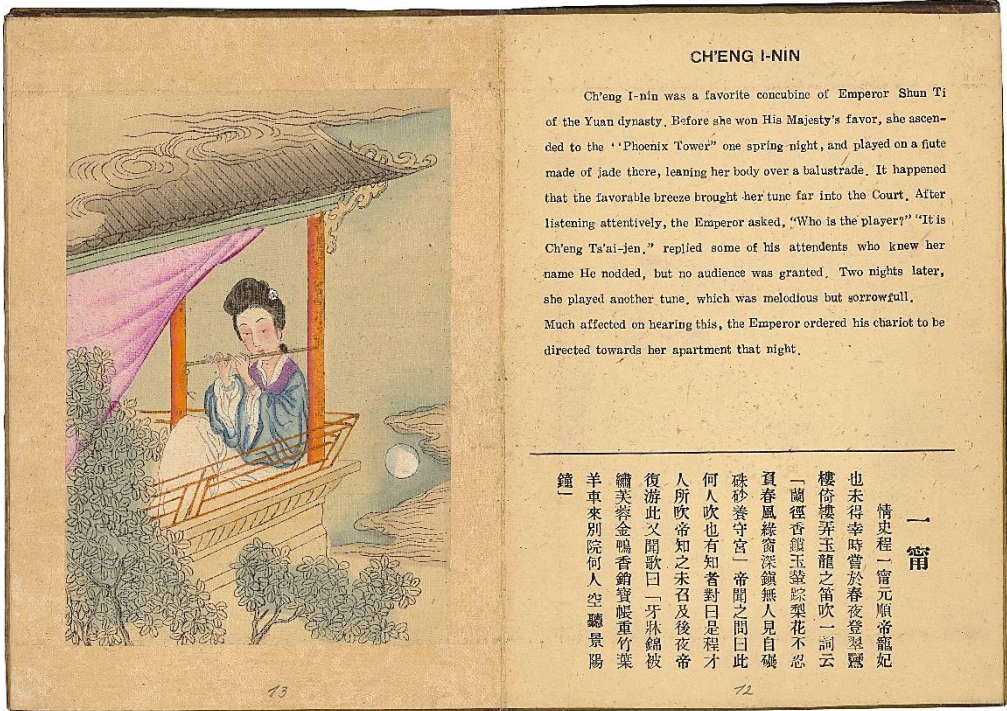 CH'ENG I-NIN
Ch'eng I-nin was a favorite concubine of Emperor Shun Ti
of the Yuan dynasty. Before she won His Majesty's favor, she ascen-
ded to the "Phoenix Tower" one spring night, and played on a flute
made of jade there, leaning her body over a balustrade. It happened
that the favorable breeze brought her tune far into the Court. After
listening attentively, the Emperor asked, "Who is the player?" "It is
Ch'eng Ts'ai-jen." replied some of his attendents who knew her
name He nodded, but no audience was granted. Two nights later,
she played another tune. which was melodious but sorrowfull.
Much affected on hearing this, the Emperor ordered his chariot to be
directed towards her apartment that night.
一甯
情史程一甯元順帝寵妃
也未得幸時嘗於春夜登翠鸞
樓倚樓弄玉龍之笛吹一詞云
「蘭徑香銷玉輦踪梨花不忍
負春風綠窗深鎖無人見自碾
硃砂養守宮」帝聞之問曰此
何人吹也有知者對曰是程才
人所吹帝知之未召及後夜帝
復游此又聞歌曰「牙牀錦被
繡芙蓉金鴨香銷寶帳重竹葉
羊車來別院何人空聽景陽
鐘」
13
12